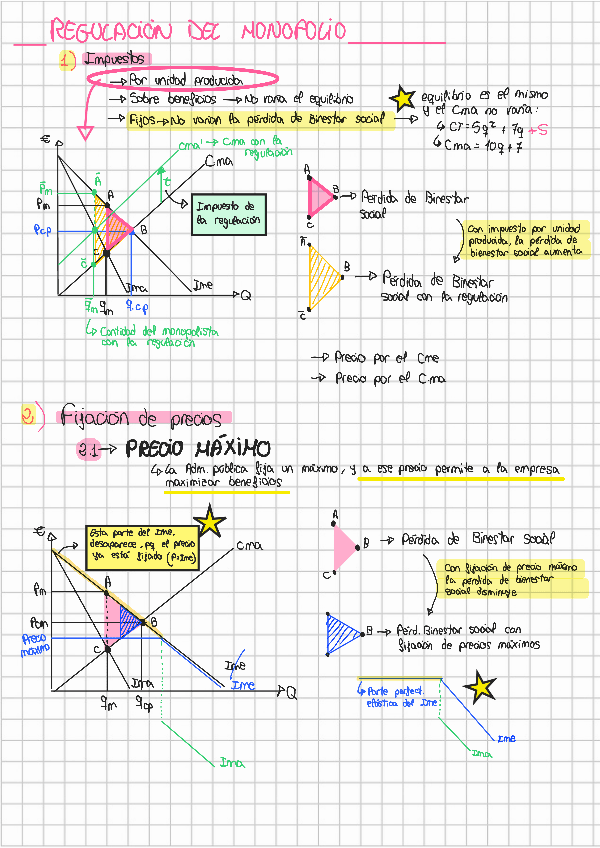 REGULACIÓN DEL MONOPOLIO
1) Impuestos
→ Por unidad producida
→ Sobre beneficios → No varía el equilibrio
→ Fijos → No varían la pérdida de Binestar social →
equilibrio es el mismo
y el Cma no varía:
↳ CT = 5q² + 7q + 5
↳ Cma = 10q + 7
€
Cma' → Cma con la
regulación
Cma
t
Impuesto de
la regulación
p̄m
Pm
Pcp
Ā
A
B
C
c̄
Ima
Ime
Q
q̄m
qm
q.cp
↳ Cantidad del monopolista
con la regulación
A
B
C
→ Pérdida de Binestar
social
Con impuesto por unidad
producida, la pérdida de
bienestar social aumenta
Ā
B
c̄
→ Pérdida de Binestar
social con la regulación
→ Precio por el Cme
→ Precio por el Cma
2) Fijación de precios
2.1 → PRECIO MÁXIMO
↳ La Adm. pública fija un máximo, y a ese precio permite a la empresa
maximizar beneficios
€
Esta parte del Ime,
desaparece, pq el precio
ya está fijado (P=Ime)
Cma
Pm
Pcm
Precio
máximo
A
B
C
Ima
Ime
Ime
Q
qm
qcp
Ima
A
B
C
→ Pérdida de Binestar Social
Con fijación de precio máximo
la pérdida de bienestar
social disminuye
B
→ Pérd. Binestar social con
fijación de precios máximos
↳ Parte perfect.
elástica del Ime
Ime
Ima